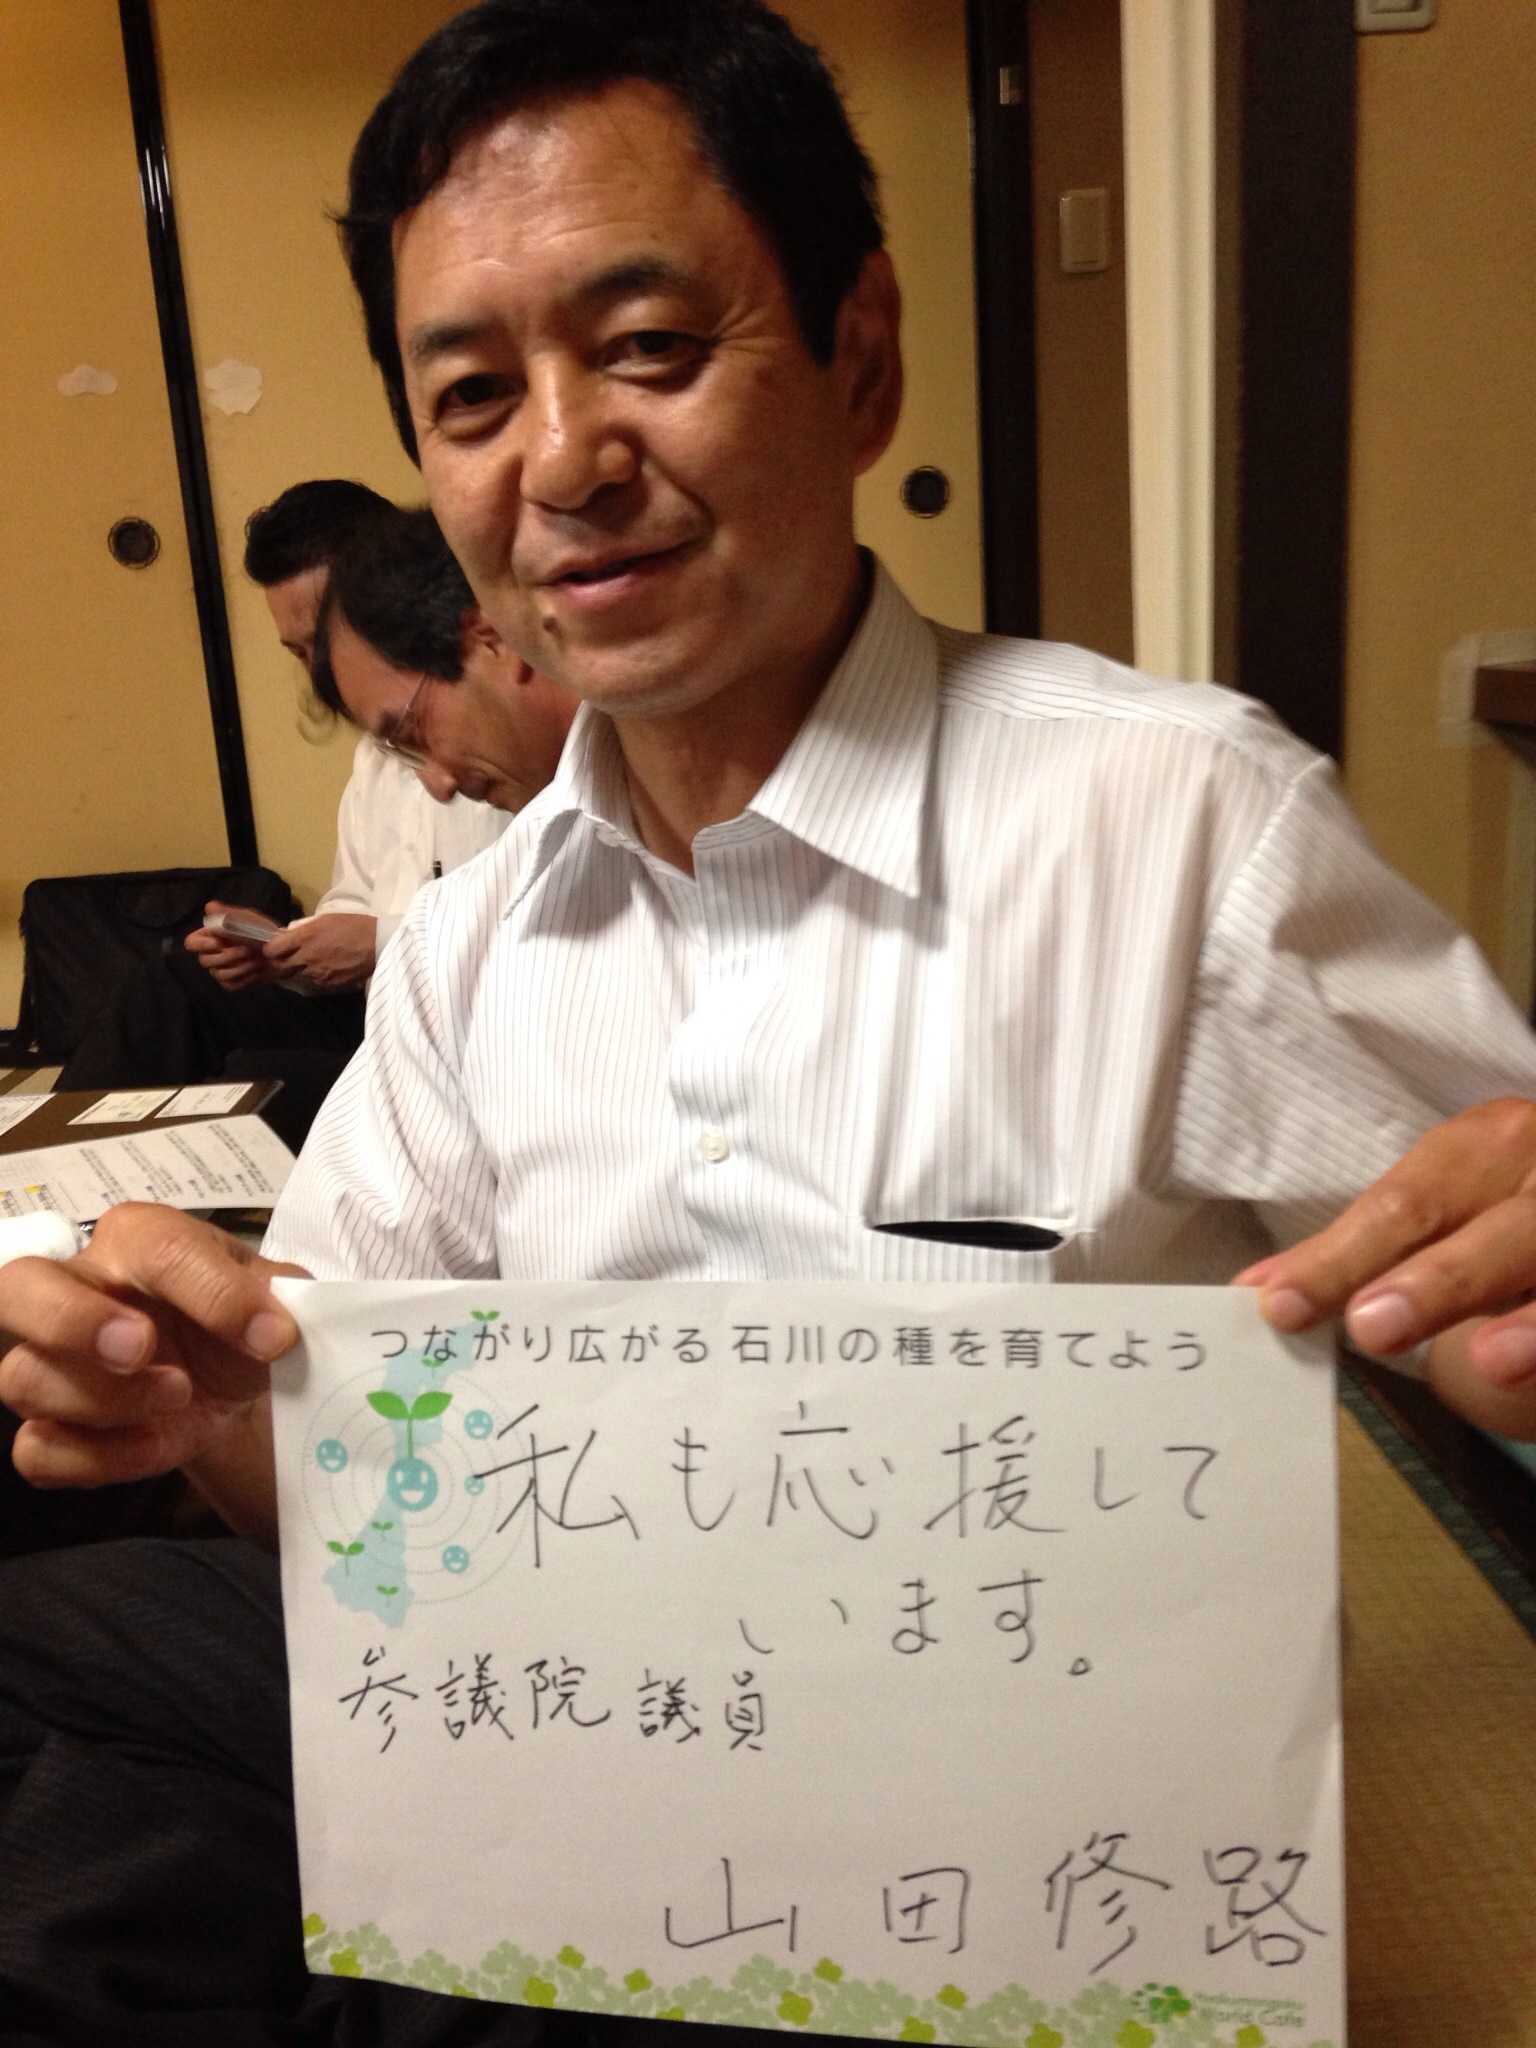 つながり広がる石川の種を育てよう
私も応援して
います。
参議院議員
山田修路
World Cafe